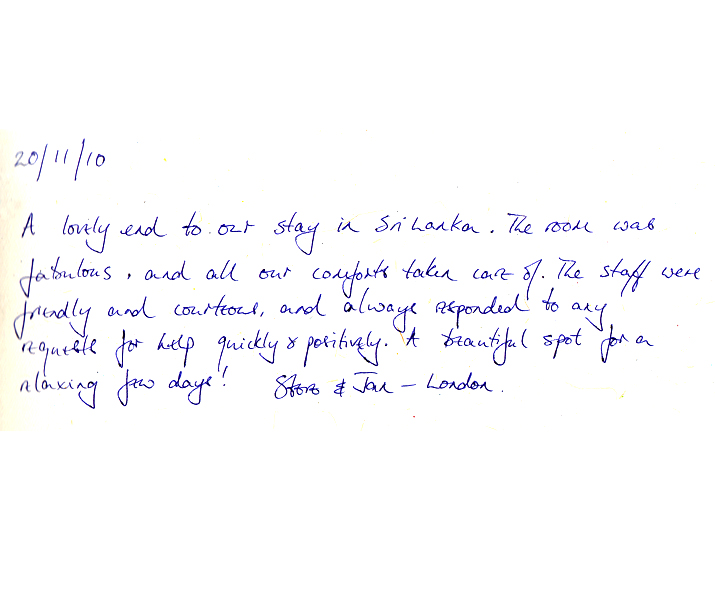 20/11/10
A lovely end to our stay in Sri Lanka. The room was
fabulous, and all our comforts taken care of. The staff were
friendly and courteous, and always responded to any
requests for help quickly & positively. A beautiful spot for a
relaxing few days! Steve & Jan – London.